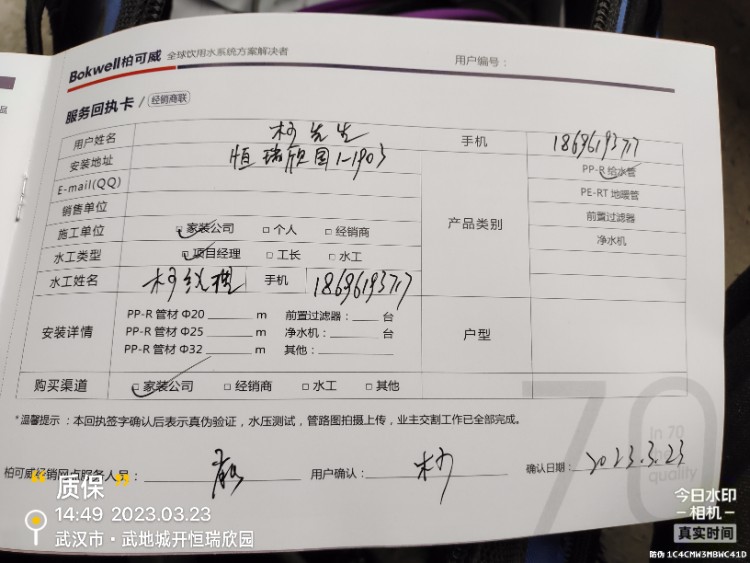 Bokwell柏可威 全球饮用水系统方案解决者
用户编号：
服务回执卡 / 经销商联
用户姓名 柯先生 手机 18696193717
安装地址 恒瑞欣园1-1903
E-mail(QQ)
销售单位
施工单位 □ 家装公司 □ 个人 □ 经销商
水工类型 □ 项目经理 □ 工长 □ 水工
产品类别
PP-R 给水管
PE-RT 地暖管
前置过滤器
净水机
水工姓名 柯经理 手机 18696193717
安装详情
PP-R 管材 Φ20 m 前置过滤器： 台
PP-R 管材 Φ25 m 净水机： 台
PP-R 管材 Φ32 m 其他：
户型
购买渠道 □ 家装公司 □ 经销商 □ 水工 □ 其他
*温馨提示：本回执签字确认后表示真伪验证，水压测试，管路图拍摄上传，业主交割工作已全部完成。
70
In 70
quality
柏可威经销网点服务人员： 用户确认： 柯 确认日期： 2023.3.23
质保
14:49 2023.03.23
武汉市·武地城开恒瑞欣园
今日水印
相机
真实时间
防伪 1C4CMW3MBWC41D